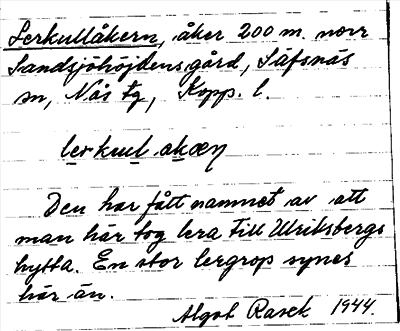 Lerkullåkern, åker 200 m. norr
Sandsjöhöjdens gård, Säfsnäs
sn, Nås tg, Kopp. l.
lerkuul åkæn
Den har fått namnet av att
man här tog lera till Ulriksbergs
hytta. En stor lergrop synes
här än.
Algot Rasck 1944.